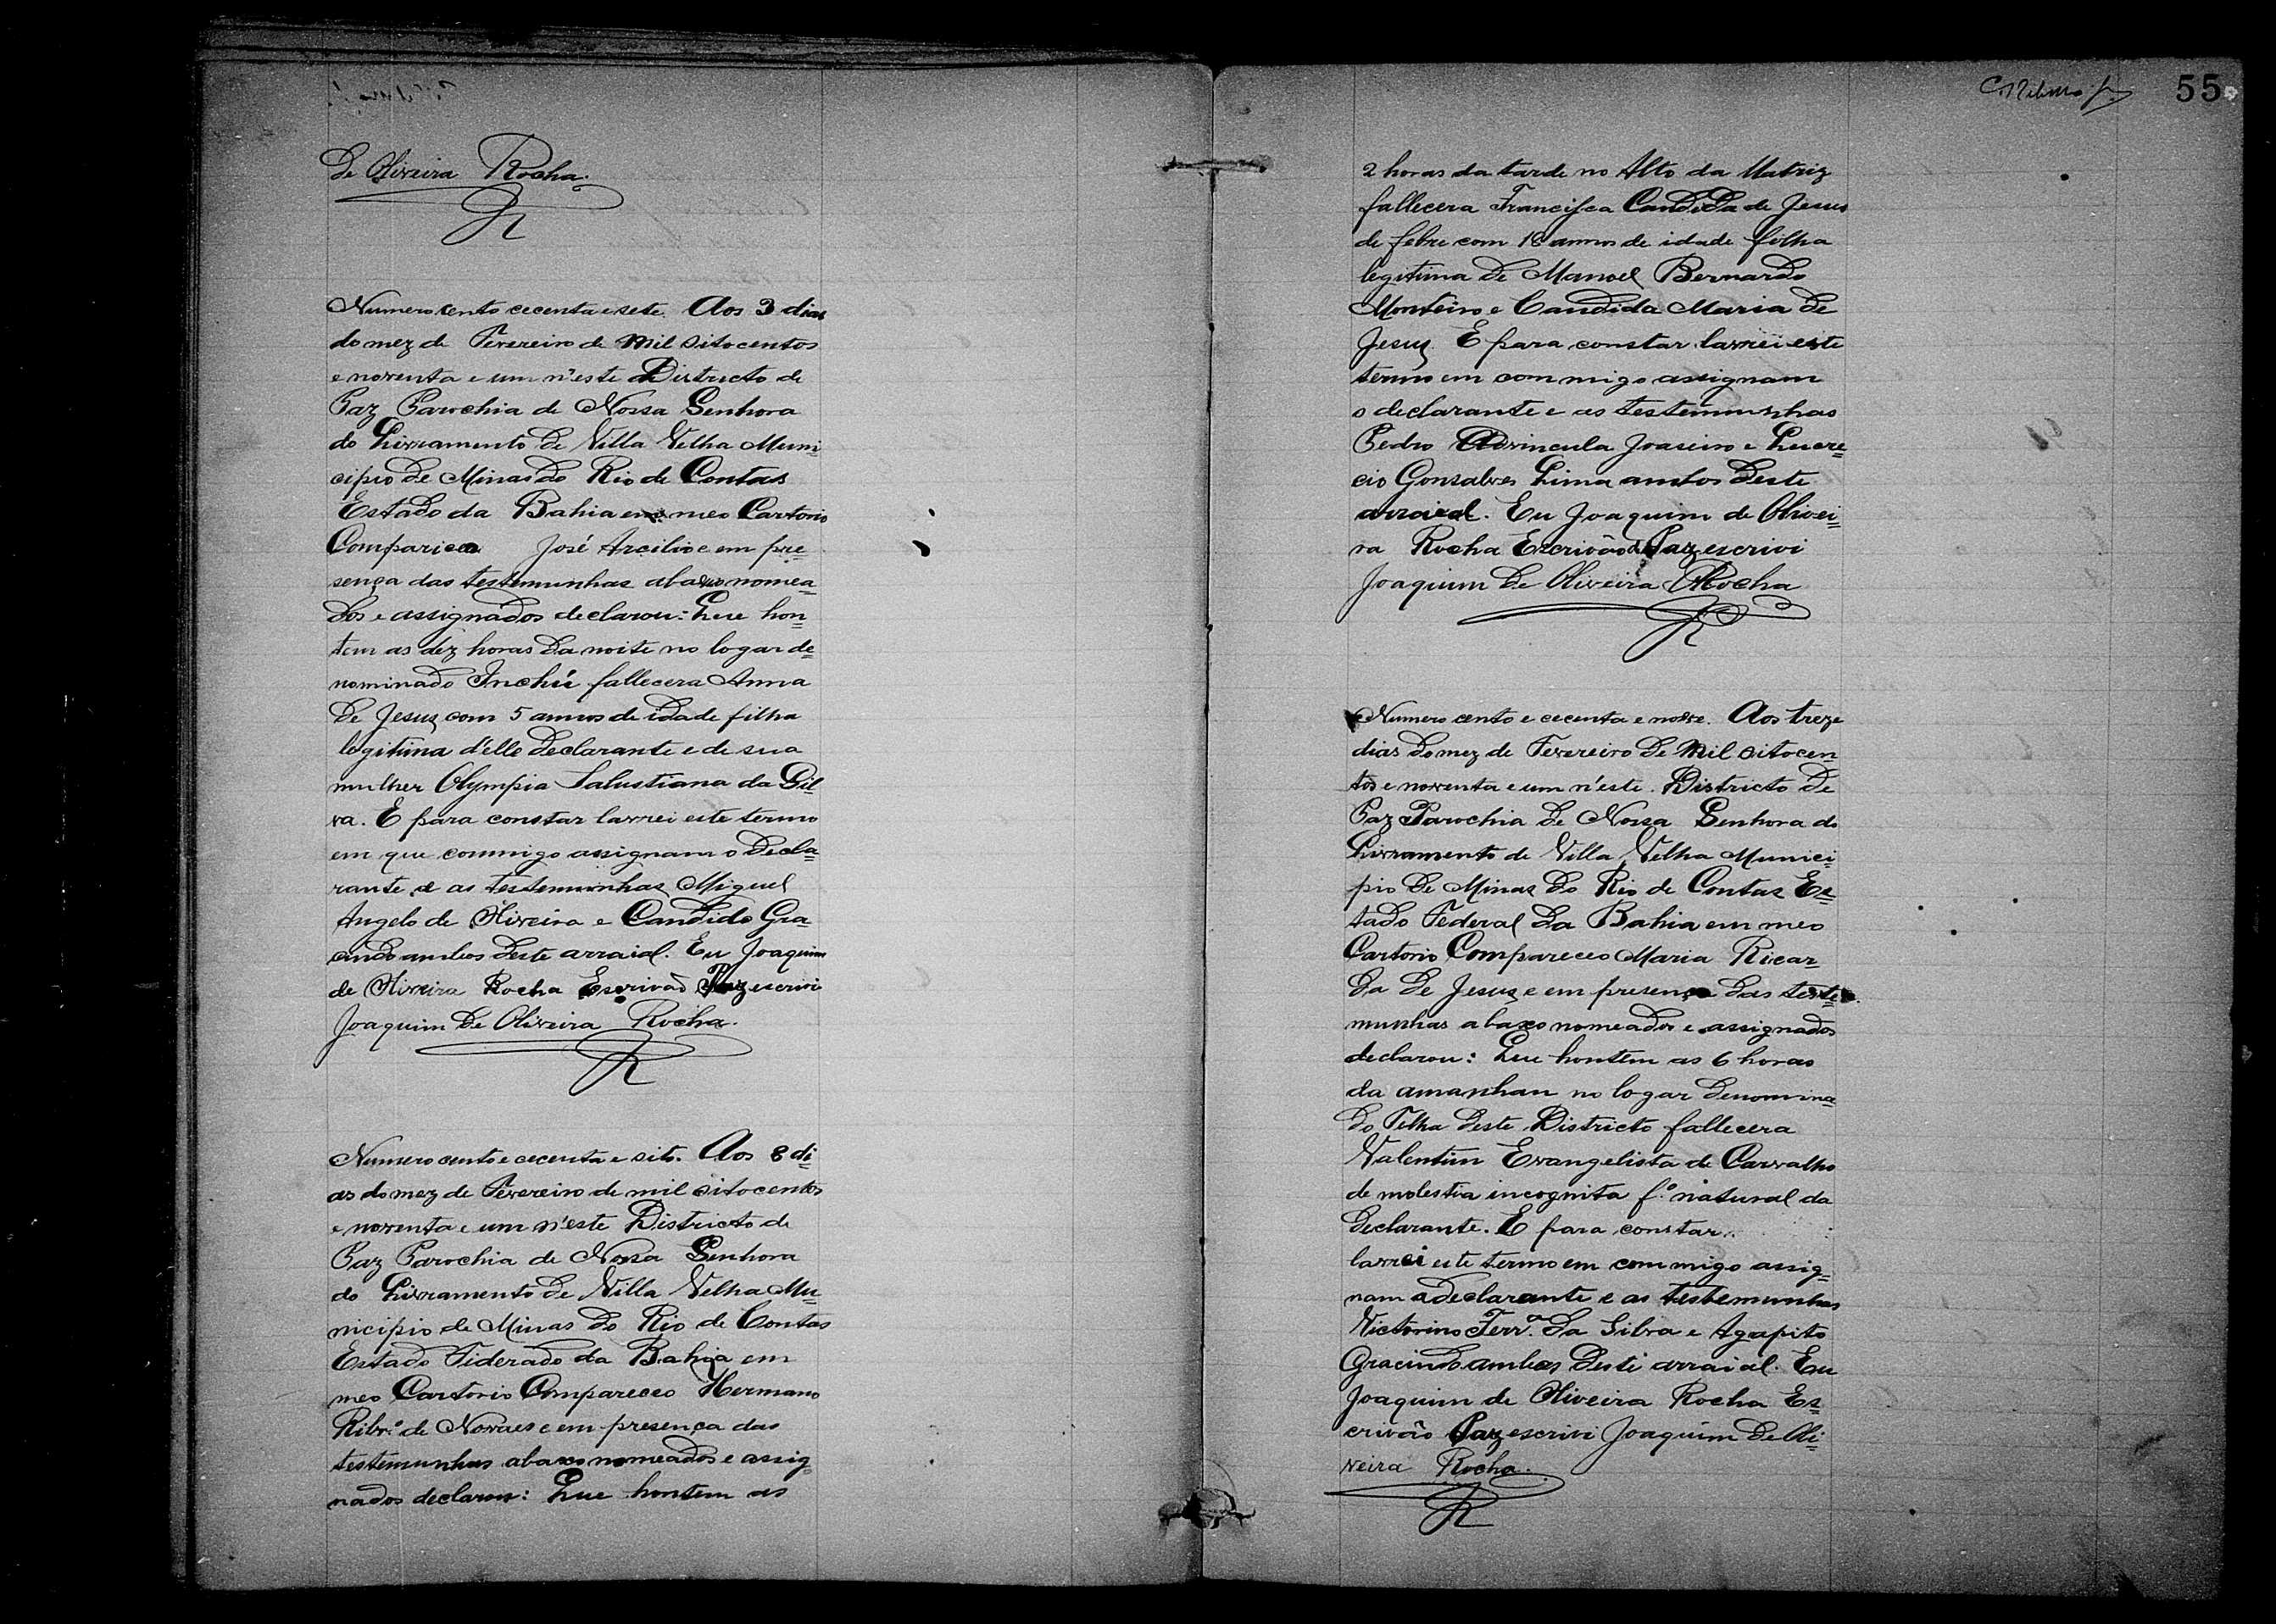 de Oliveira Rocha.
Numero cento cecenta e sete. Aos 3 dias
do mez de Fevereiro de mil oitocentos
e noventa e um n'este Districto de
Paz Parochia de Nossa Senhora
do Livramento de Villa Velha Muni=
cipio de Minas do Rio de Contas
Estado da Bahia em meo Cartorio
Compareceo José Arcilio e em pre=
sença das testemunhas abaxo nomea=
dos e assignados declarou: Que hon=
tem as dez horas da noite no logar de=
nominado Inchú fallecera Anna
de Jesus com 5 annos de idade filha
legitima d'elle declarante e de sua
mulher Olympia Salustiana da Sil=
va. E para constar lavrei este termo
em que commigo assignam o decla=
rante e as testemunhas Miguel
Angelo de Oliveira e Candido Gra=
cindo ambos deste arraial. Eu Joaquim
de Oliveira Rocha Escrivão Paz escrivi
Joaquim de Oliveira Rocha.
Numero cento e cecenta e oito. Aos 8 di=
as do mez de Fevereiro de mil oitocentos
e noventa e um n'este Districto de
Paz Parochia de Nossa Senhora
do Livramento de Villa Velha Mu=
nicipio de Minas do Rio de Contas
Estado Fiderado da Bahia em
meo Cartorio Compareceo Hermano
Ribr.º de Novaes e em presença das
testemunhas abaxo nomeados e assig=
nados declarou: Que hontem as
55
2 horas da tarde no Alto da Matriz
fallecera Francisca Candida de Jesus
de febre com 18 annos de idade filha
legitima de Manoel Bernardo
Monteiro e Candida Maria de
Jesus. E para constar lavrei este
termo em commigo assignam
o declarante e as testemunhas
Pedro Advincula Joaseiro e Lucre=
cio Gonsalves Lima ambos deste
arraial. Eu Joaquim de Olivei=
ra Rocha Escrivão de Paz escrivi
Joaquim de Oliveira Rocha
Numero cento e cecenta e nove. Aos treze
dias do mez de Fevereiro de mil oitocen=
tos e noventa e um n'este Districto de
Paz Parochia de Nossa Senhora do
Livramento de Villa Velha Munici=
pio de Minas do Rio de Contas Es=
tado Federal da Bahia em meo
Cartorio Compareceo Maria Ricar=
da de Jesus e em presença das teste=
munhas abaxo nomeados e assignados
declarou: Que hontem as 6 horas
da amanhan no logar denomina=
do Telha deste Districto fallecera
Valentim Evangelista de Carvalho
de molestia incognita f.º natural da
declarante. E para constar
lavrei este termo em commigo assig=
nam a declarante e as testemunhas
Victorino Ferr.ª da Silva e Agapito
Gracindo ambos deste arraial. Eu
Joaquim de Oliveira Rocha Es=
crivão Paz escrivi Joaquim de Oli=
veira Rocha.